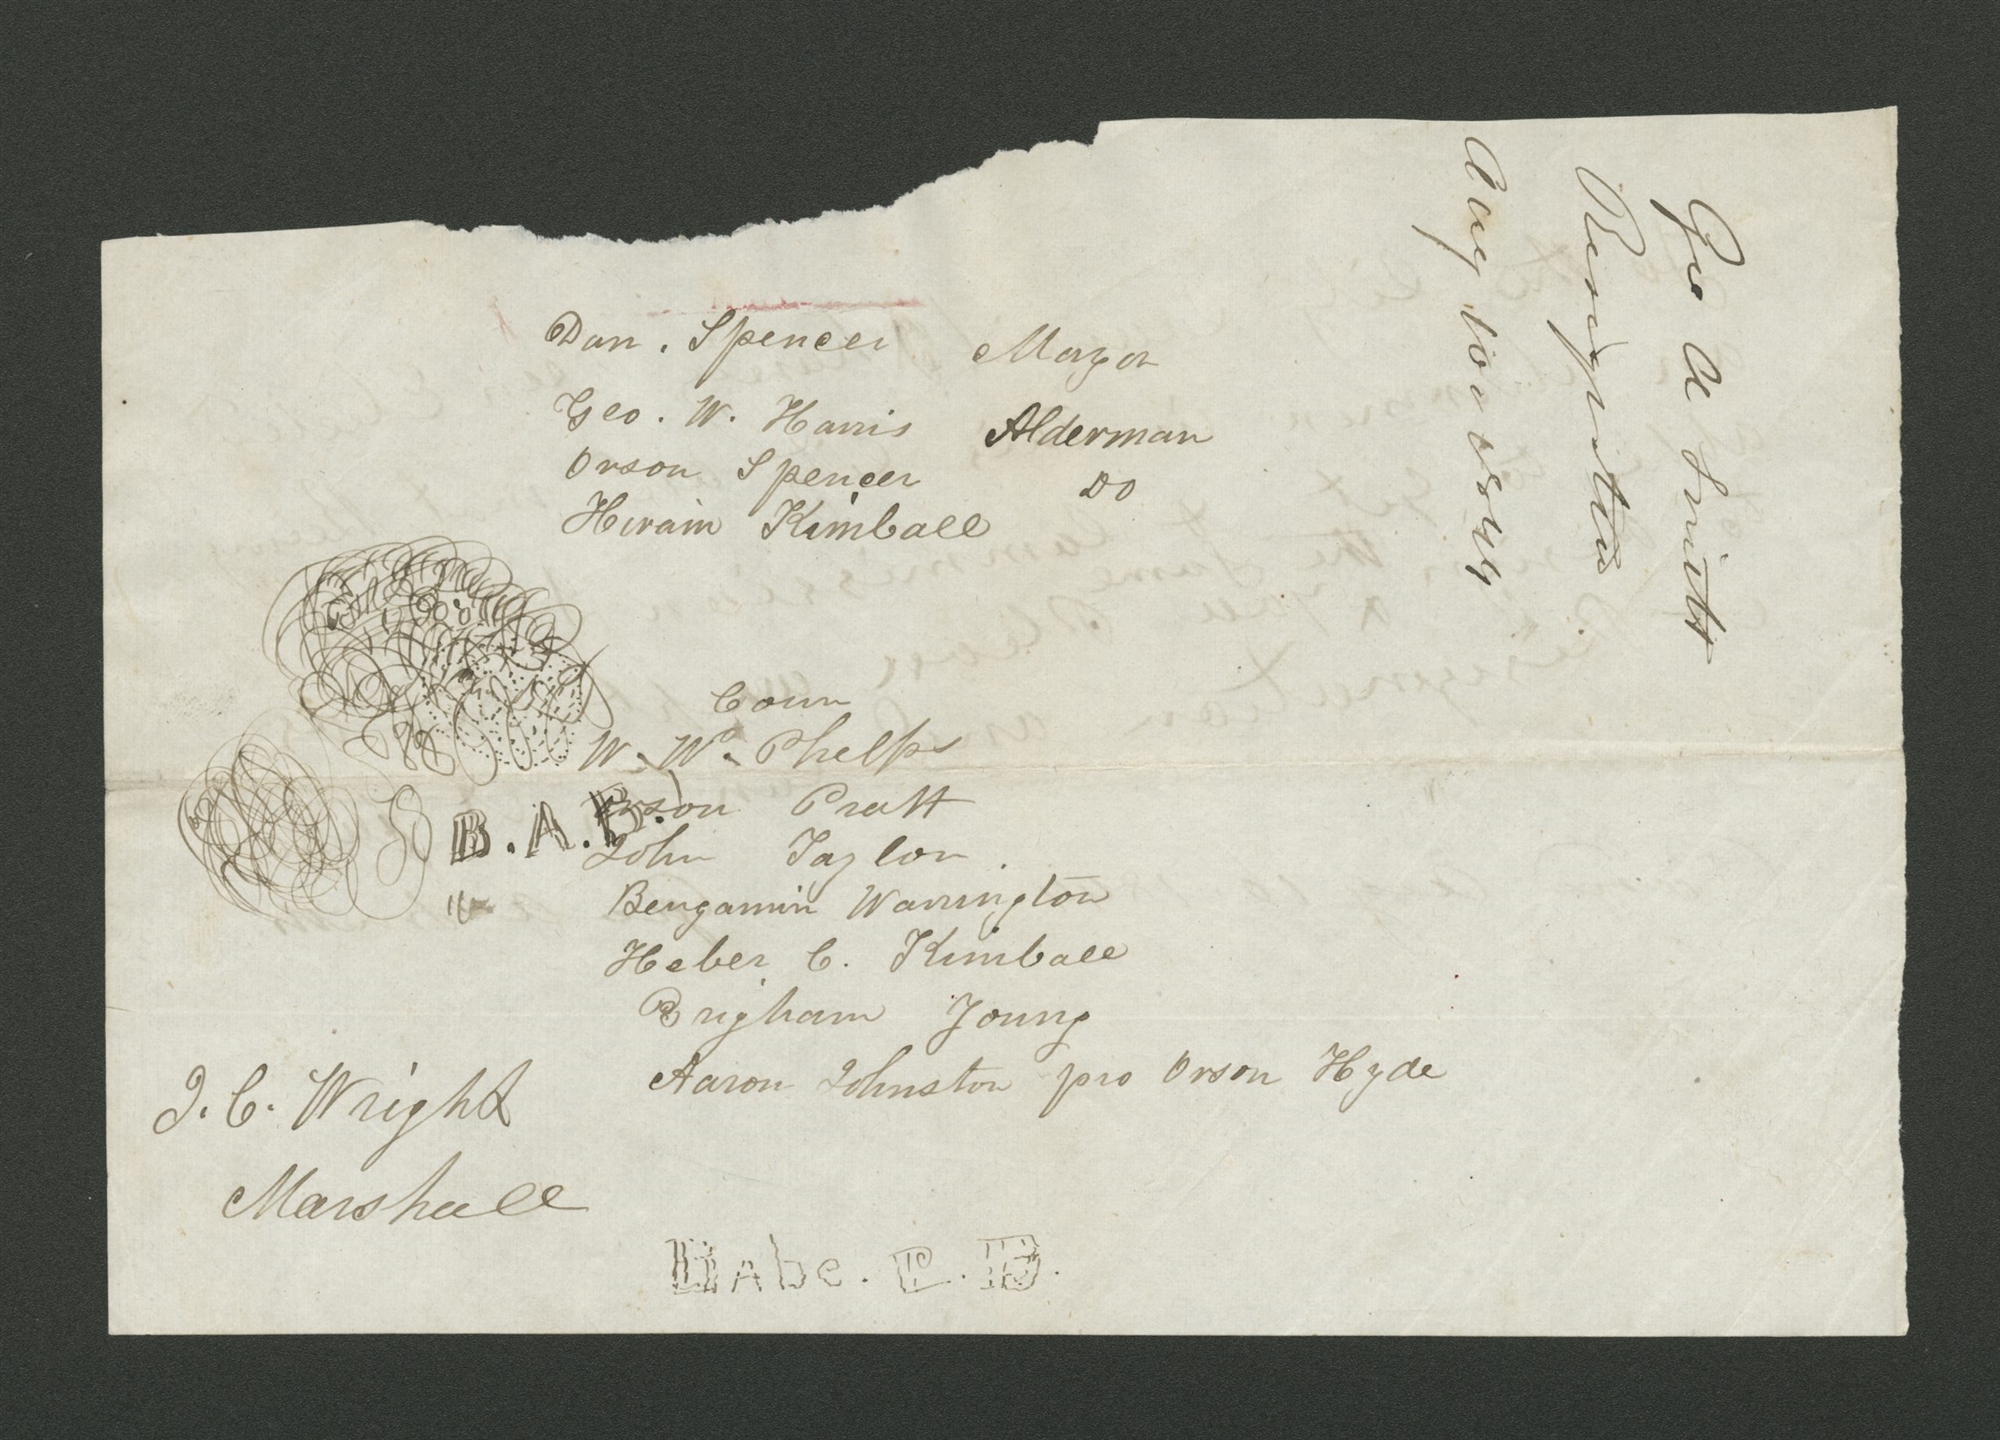 Dan. Spencer Mayor
Geo. W. Harris Alderman
Orson Spencer DO
Hiram Kimball
Coun
W. W. Phelps
Orson Pratt
B.A.B.
John Taylor.
Bengamin Warrington
Heber C. Kimball
Brigham Young
Aaron Johnston pro Orson Hyde
J. C. Wright
Marshall
Geo A Smith
Resignation
Aug 10 1844